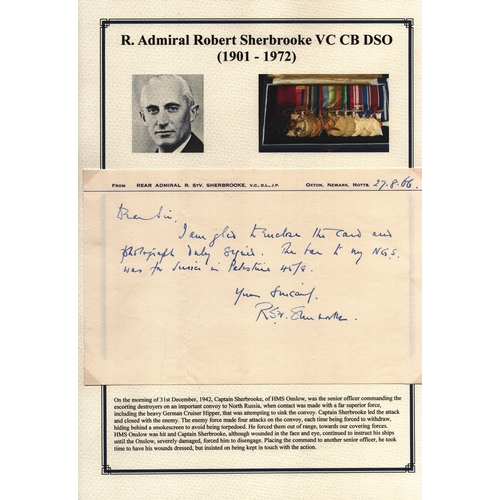 R. Admiral Robert Sherbrooke VC CB DSO
(1901 - 1972)
FROM REAR ADMIRAL R. STV. SHERBROOKE, V.C., D.L., J.P. OXTON, NEWARK, NOTTS 27.8.66.
Dear Sir,
I am glad to enclose the card and
photograph duly signed. The bar to my N.G.S.
was for service in Palestine
Yours sincerely,
R StV. Sherbrooke
On the morning of 31st December, 1942, Captain Sherbrooke, of HMS Onslow, was the senior officer commanding the
escorting destroyers on an important convoy to North Russia, when contact was made with a far superior force,
including the heavy German Cruiser Hipper, that was attempting to sink the convoy. Captain Sherbrooke led the attack
and closed with the enemy. The enemy force made four attacks on the convoy, each time being forced to withdraw,
hiding behind a smokescreen to avoid being torpedoed. He forced them out of range, towards our covering forces.
HMS Onslow was hit and Captain Sherbrooke, although wounded in the face and eye, continued to instruct his ships
until the Onslow, severely damaged, forced him to disengage. Placing the command to another senior officer, he took
time to have his wounds dressed, but insisted on being kept in touch with the action.